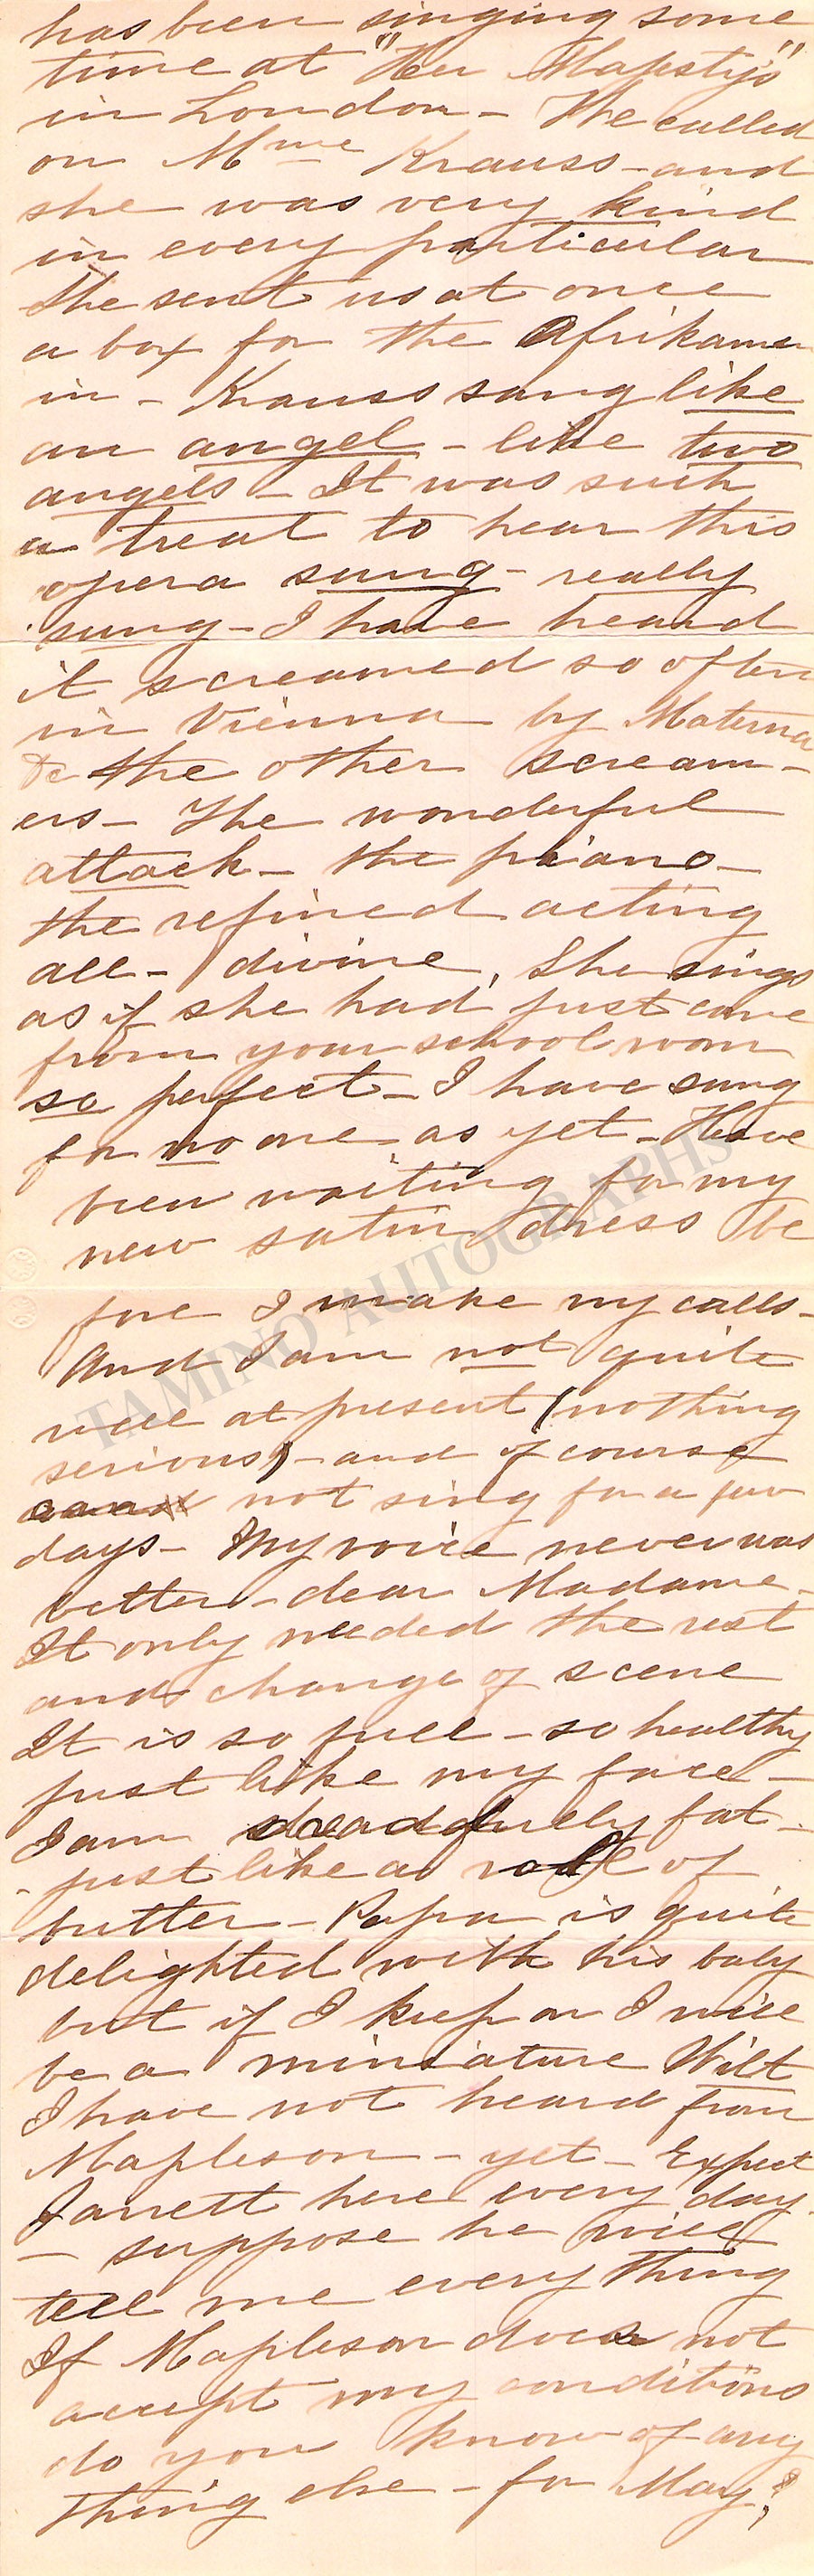 has been singing some
time at "Her Majesty's"
in London - We called
on Mme Krauss - and
she was very kind
in every particular
She sent us at once
a box for the Afrikaner
in - Krauss sang like
an angel - like two
angels - It was such
a treat to hear this
opera sung - really
sung - I have heard
it screamed so often
in Vienna by Materna
& the other scream-
ers - The wonderful
attack - the piano -
the refined acting
all - divine, She sings
as if she had just come
from your school room
so perfect - I have sung
for no one as yet - Have
been waiting for my
new satin dress be
fore I make my calls -
And I am not quite
well at present (nothing
serious) - and of course
not sing for a few
days - My voice never was
better - dear Madame -
It only needed the rest
and change of scene
It is so full - so healthy
just like my face -
I am dreadfully fat -
- just like a roll of
butter - Papa is quite
delighted with his baby
but if I keep on I will
be a miniature Wilt
I have not heard from
Mapleson - yet - Expect
Jarrett here every day
- suppose he will
tell me every thing
If Mapleson does not
accept my conditions
do you know of any
thing else - for May?
TAMINO AUTOGRAPHS